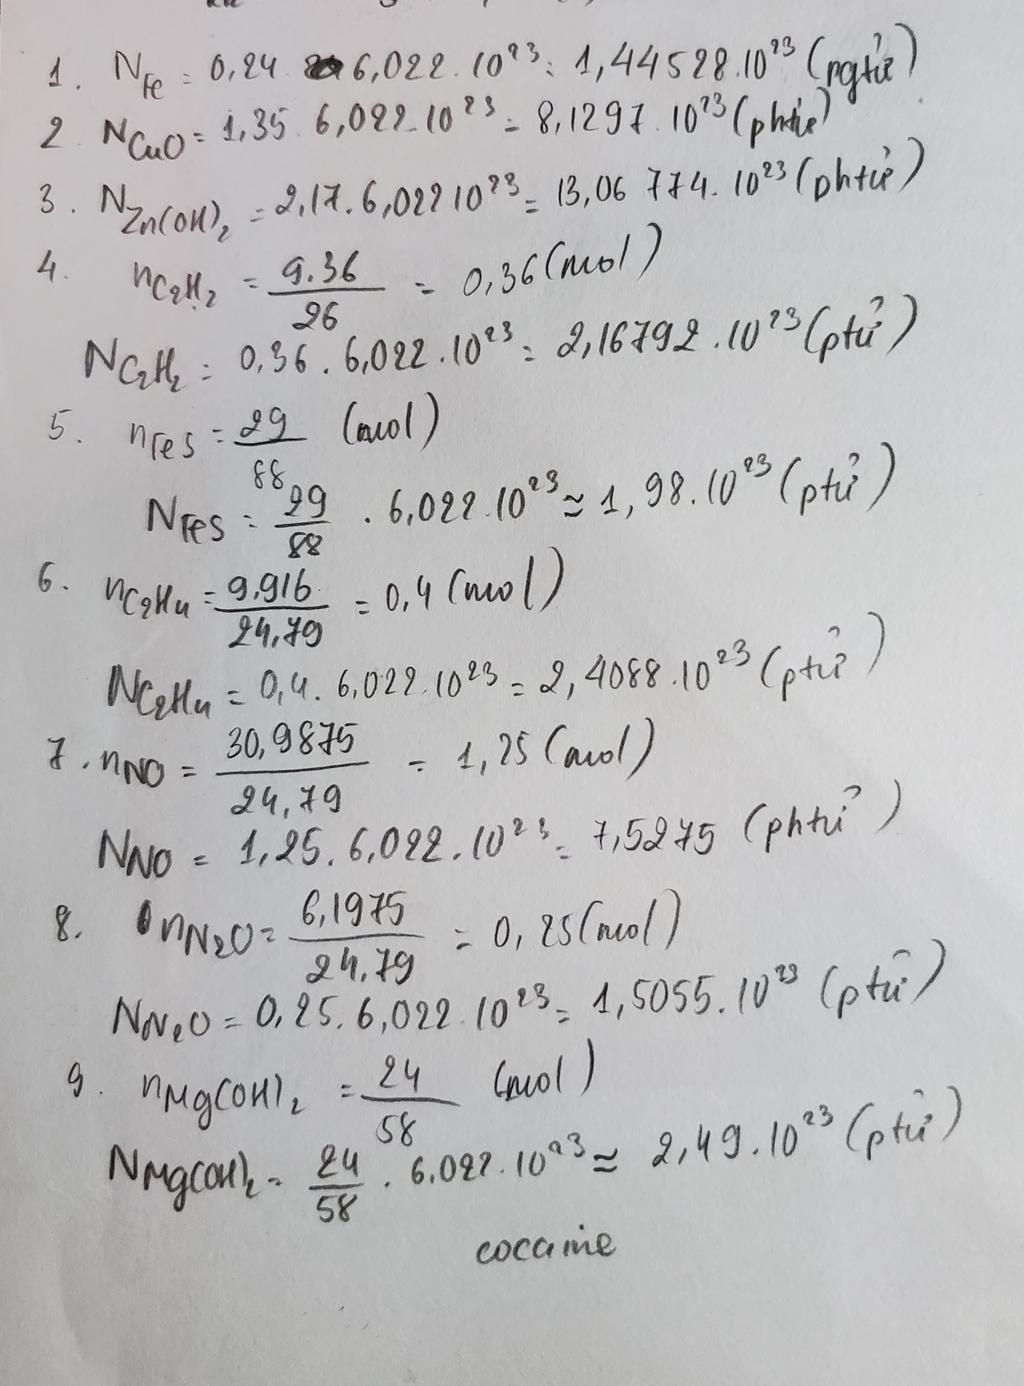 1. N_Fe = 0,24 6,022.10²³ = 1,44528.10²³ (ngtử)
2 N_CuO = 1,35 6,022.10²³ = 8,1297.10²³ (phtử)
3. N_Zn(OH)₂ = 2,17.6,022 10²³ = 13,06774.10²³ (phtử)
4. n_C₂H₂ = 9.36/26 = 0,36 (mol)
N_C₂H₂ = 0,36.6,022.10²³ = 2,16792.10²³ (ptử)
5. n_FeS = 29/88 (mol)
N_FeS = 29/88 . 6,022.10²³ ≈ 1,98.10²³ (ptử)
6. n_C₂H₄ = 9,916/24,79 = 0,4 (mol)
N_C₂H₄ = 0,4.6,022.10²³ = 2,4088.10²³ (ptử)
7. n_NO = 30,9875/24,79 = 1,25 (mol)
N_NO = 1,25.6,022.10²³ = 7,5275 (phtử)
8. n_N₂O = 6,1975/24,79 = 0,25 (mol)
N_N₂O = 0,25.6,022.10²³ = 1,5055.10²³ (ptử)
9. n_Mg(OH)₂ = 24/58 (mol)
N_Mg(OH)₂ = 24/58 . 6,022.10²³ ≈ 2,49.10²³ (ptử)
cocaine